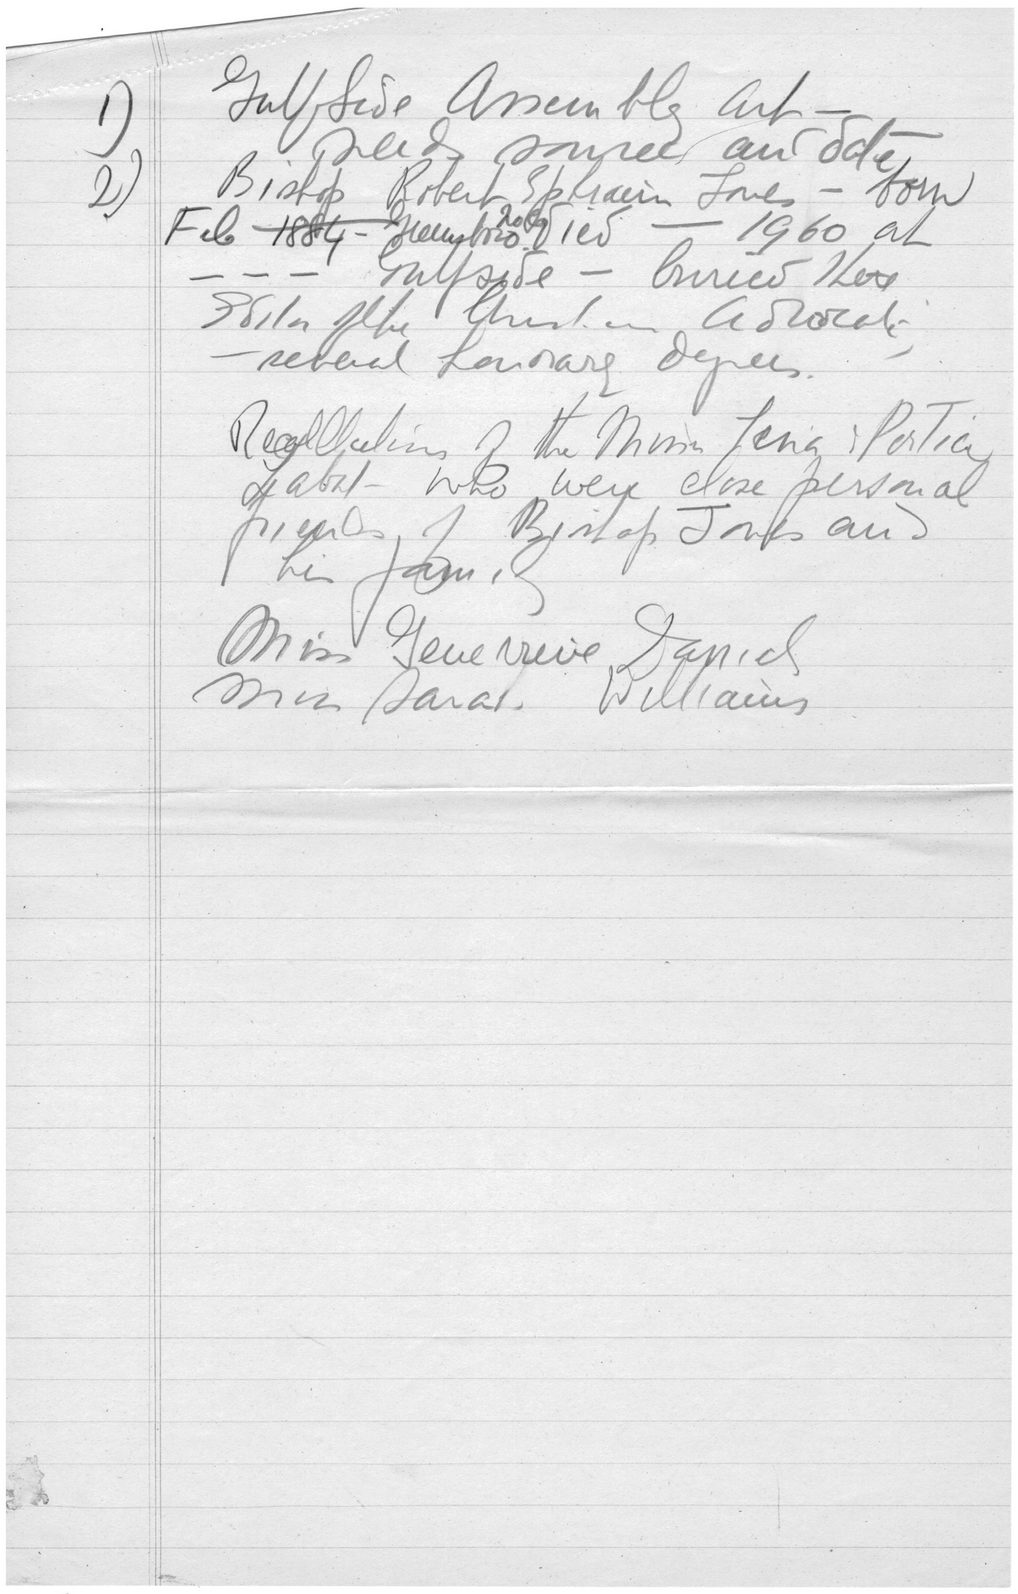 1) Gulfside Assembly art -
needs source and date
2) Bishop Robert Ephraim Jones - born
Feb - 1884 - Greensboro No Ca Died — 1960 at
- - - Gulfside - buried there
Editor of the Christian Advocate,
- several honorary degrees.
Recollections of the Misses Lenia & Portia
Labat - who were close personal
friends of Bishop Jones and
his family
Miss Genevieve Daniels
Miss Sarah Williams